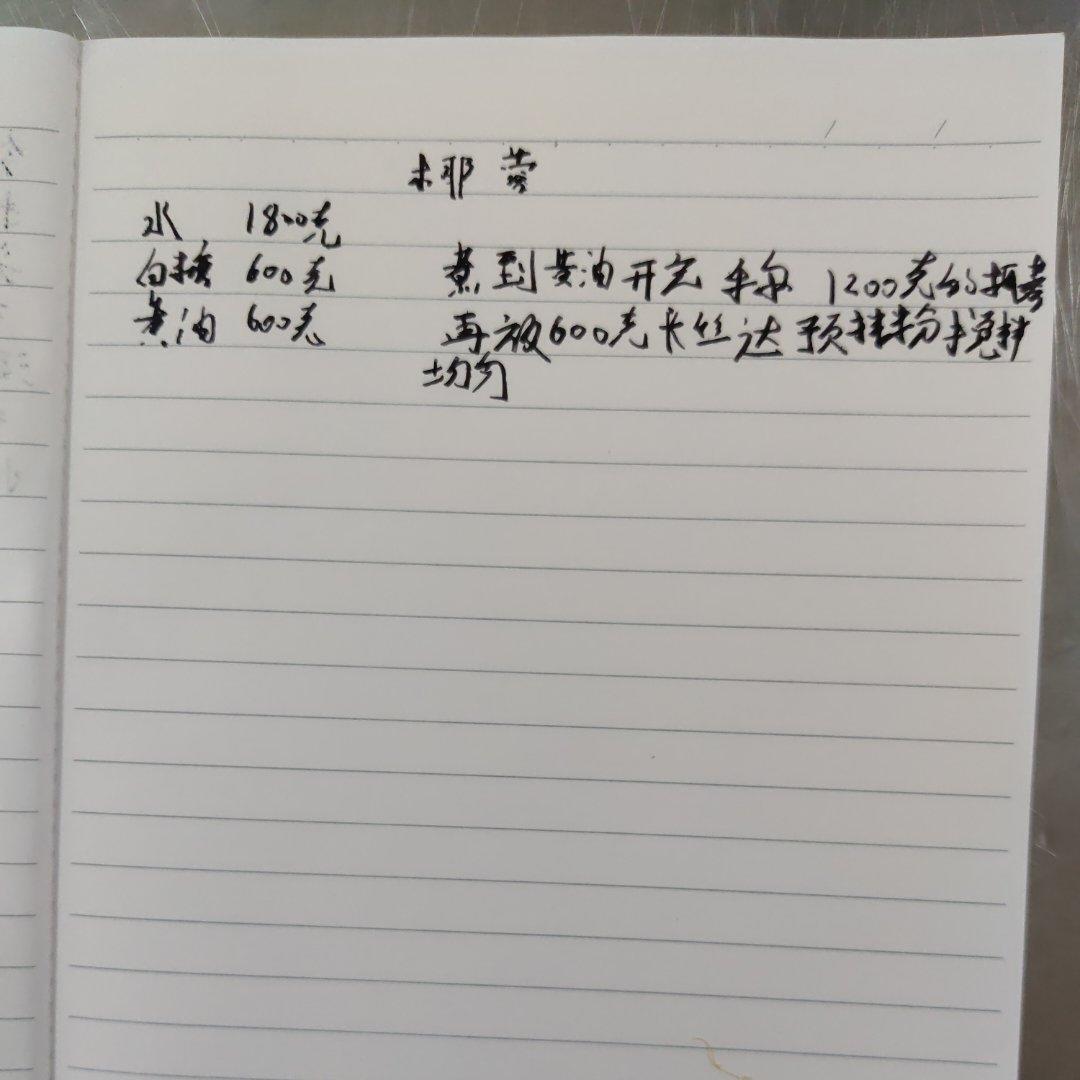 椰蓉
水 1800克
白糖 600克 煮到黄油开完 1200克的椰蓉
黄油 600克 再放600克卡丝达预拌粉搅拌
均匀